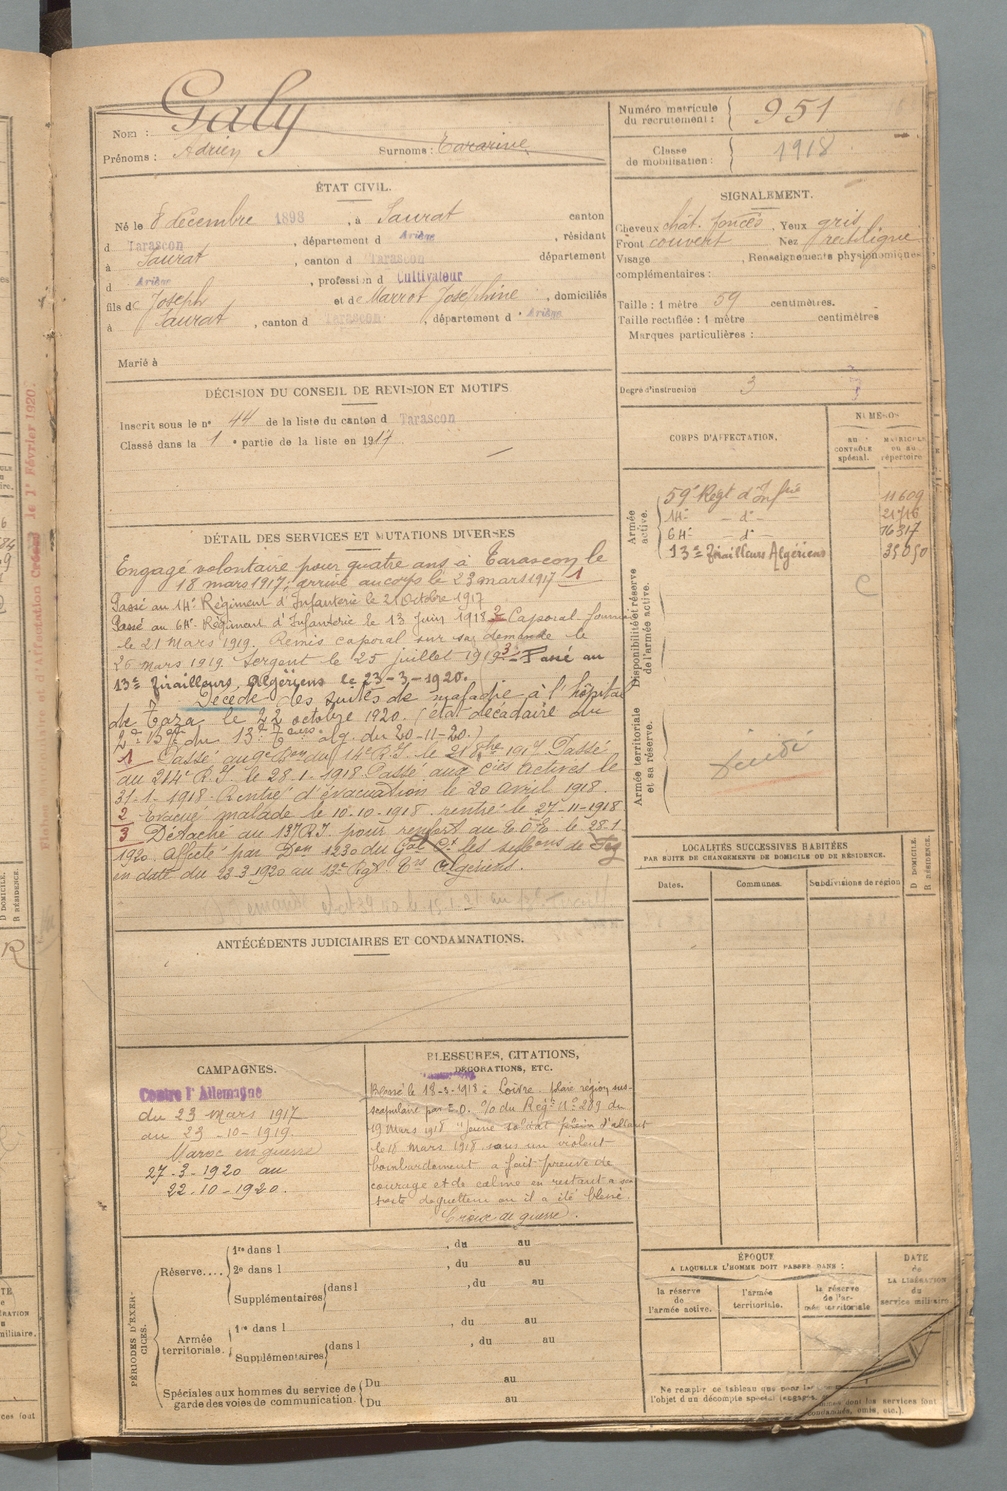 Galy
Nom :
Prénoms : Adrien Surnoms :
Numéro matricule du recrutement : 951
Classe de mobilisation : 1918
ÉTAT CIVIL.
Né le 8 décembre 1898, à Saurat canton
d Tarascon, département d Ariège, résidant
à Saurat, canton d Tarascon département
d Ariège, profession d Cultivateur
fils de Joseph et de Marrot Joséphine, domiciliés
à Saurat, canton d Tarascon, département d Ariège
Marié à
SIGNALEMENT.
Cheveux chât. foncés, Yeux gris
Front couvert Nez rectiligne
Visage , Renseignements physionomiques
complémentaires :
Taille : 1 mètre 59 centimètres.
Taille rectifiée : 1 mètre centimètres
Marques particulières :
Degré d'instruction 3
DÉCISION DU CONSEIL DE REVISION ET MOTIFS
Inscrit sous le n° 44 de la liste du canton d Tarascon
Classé dans la 1 e partie de la liste en 1917
CORPS D'AFFECTATION.
NUMÉROS
AU CONTRÔLE spécial.
MATRICULE ou au répertoire
Armée active.
59e Regt d'Infrie 11609
14e - d° - 21716
64e - d° - 16317
13e Tirailleurs Algériens 35050
Disponibilité et réserve de l'armée active.
Armée territoriale et sa réserve.
DÉTAIL DES SERVICES ET MUTATIONS DIVERSES
Engagé volontaire pour quatre ans à Tarascon le
18 mars 1917; arrivé au corps le 23 mars 1917 1
Passé au 14e Régiment d'Infanterie le 2 Octobre 1917
Passé au 64e Régiment d'Infanterie le 13 juin 1918 2 Caporal fourrier
le 21 mars 1919. Remis caporal sur sa demande le
26 mars 1919. Sergent le 25 juillet 1919 3 - Passé au
13e Tirailleurs Algériens le 23-3-1920.
Décédé des suites de maladie à l'hôpital
de Taza le 22 octobre 1920. (état décadaire du
du 13e alg. du 20-11-20.)
1 Passé au 9e Bon du 14e R.I. le 21 8bre 1917 Passé
au 214e R.I. le 28-1-1918 Passé aux Cies actives le
31-1-1918. Rentré d'évacuation le 20 avril 1918.
2 Evacué malade le 10-10-1918 rentré le 27-11-1918
3 Détaché au 137 R.I. pour renfort au T.O.E. le 28-1
1920. Affecté par Don 1230 du Gal Ct les subons de
en date du 23-3-1920 au 13e Rgt Ers Algériens.
ANTÉCÉDENTS JUDICIAIRES ET CONDAMNATIONS.
LOCALITÉS SUCCESSIVES HABITÉES
PAR SUITE DE CHANGEMENTS DE DOMICILE OU DE RÉSIDENCE.
Dates. Communes. Subdivisions de région
D DOMICILE.
R RÉSIDENCE.
CAMPAGNES.
Contre l'Allemagne
du 23 Mars 1917
au 23-10-1919.
Maroc en guerre
27-3-1920 au
22-10-1920.
BLESSURES, CITATIONS,
DÉCORATIONS, ETC.
Blessé le 18-3-1918 à Loivre plaie région sus-
scapulaire par E.O. O/ du Regt N° 289 du
19 Mars 1918 "jeune soldat plein d'allant
le 18 mars 1918 sous un violent
bombardement a fait preuve de
courage et de calme en restant à son
poste de guetteur où il a été blessé.
Croix de guerre.
PÉRIODES D'EXERCICES.
Réserve.... 1re dans l , du au
2e dans l , du au
Supplémentaires dans l , du au
Armée territoriale. 1re dans l , du au
Supplémentaires dans l , du au
Spéciales aux hommes du service de garde des voies de communication. Du au
Du au
ÉPOQUE
A LAQUELLE L'HOMME DOIT PASSER DANS :
la réserve de l'armée active.
l'armée territoriale.
la réserve de l'armée territoriale
DATE de LA LIBÉRATION du service militaire.
Ne remplir ce tableau que pour
l'objet d'un décompte spécial
dont les services sont
condamnés, omis, etc.).
le 1er Février 1920.